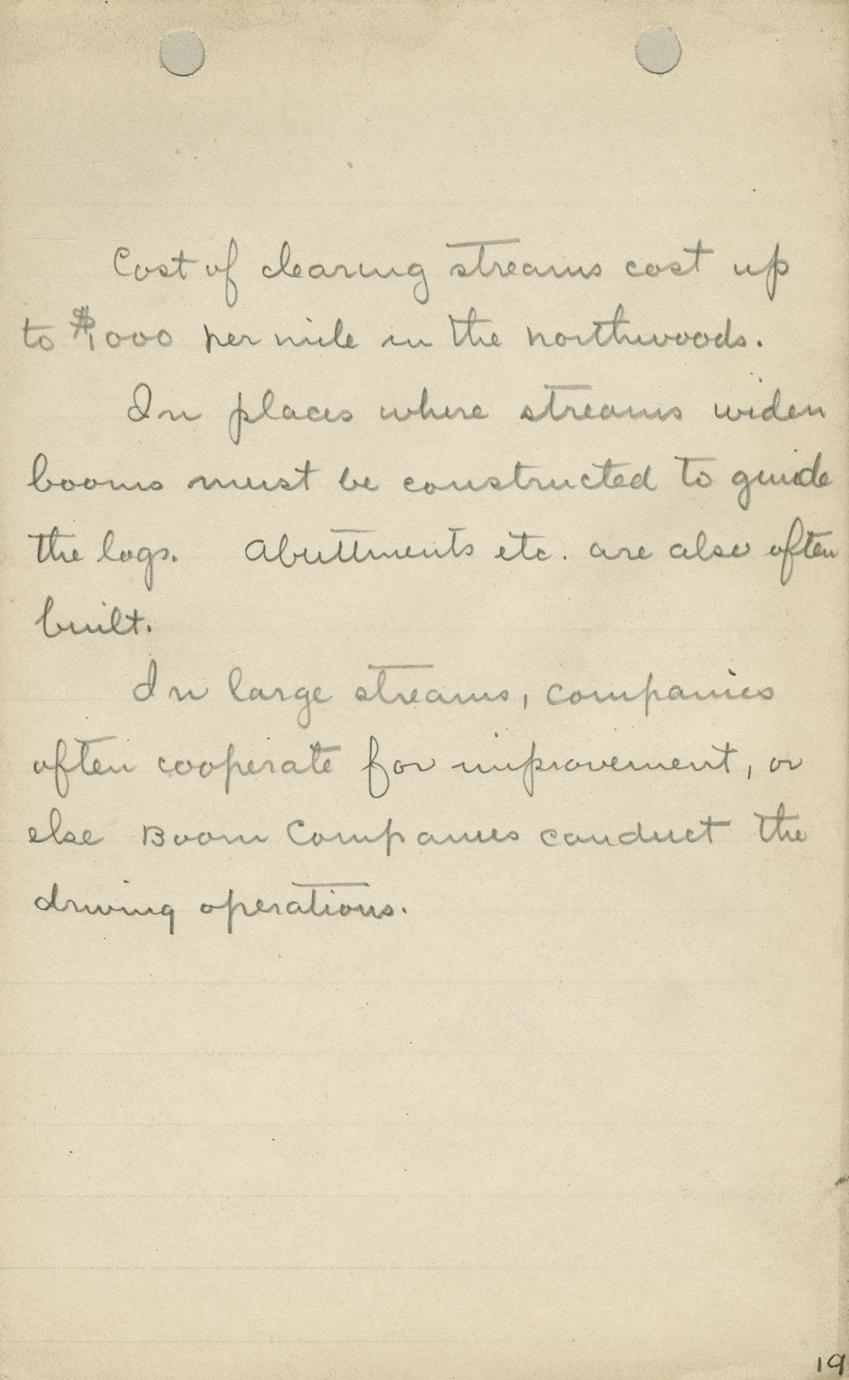 Cost of clearing streams cost up
to $1000 per mile in the northwoods.
In places where streams widen
booms must be constructed to guide
the logs. Abuttments etc. are also often
built.
In large streams, companies
often cooperate for improvement, or
else Boom Companies conduct the
driving operations.
19